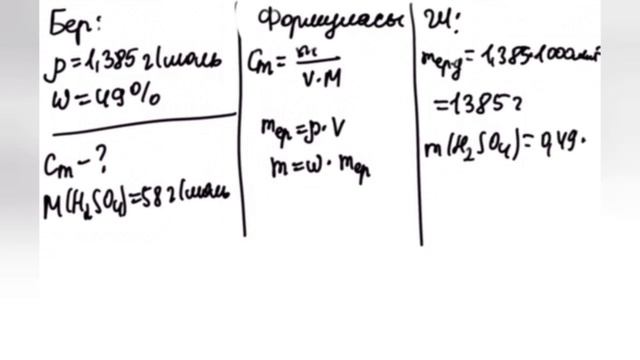 Бер:
ρ=1,385 г/моль
ω=49%
Cm-?
M(H₂SO₄)=58 г/моль
Формуласы
Cm= m/V·M
mер=ρ·V
m=ω·mер
Ш:
mерд=1,385·1000мл
=1385г
m(H₂SO₄)=0,49·